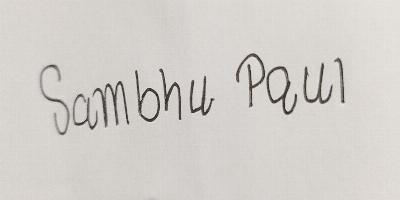 Sambhu Paul